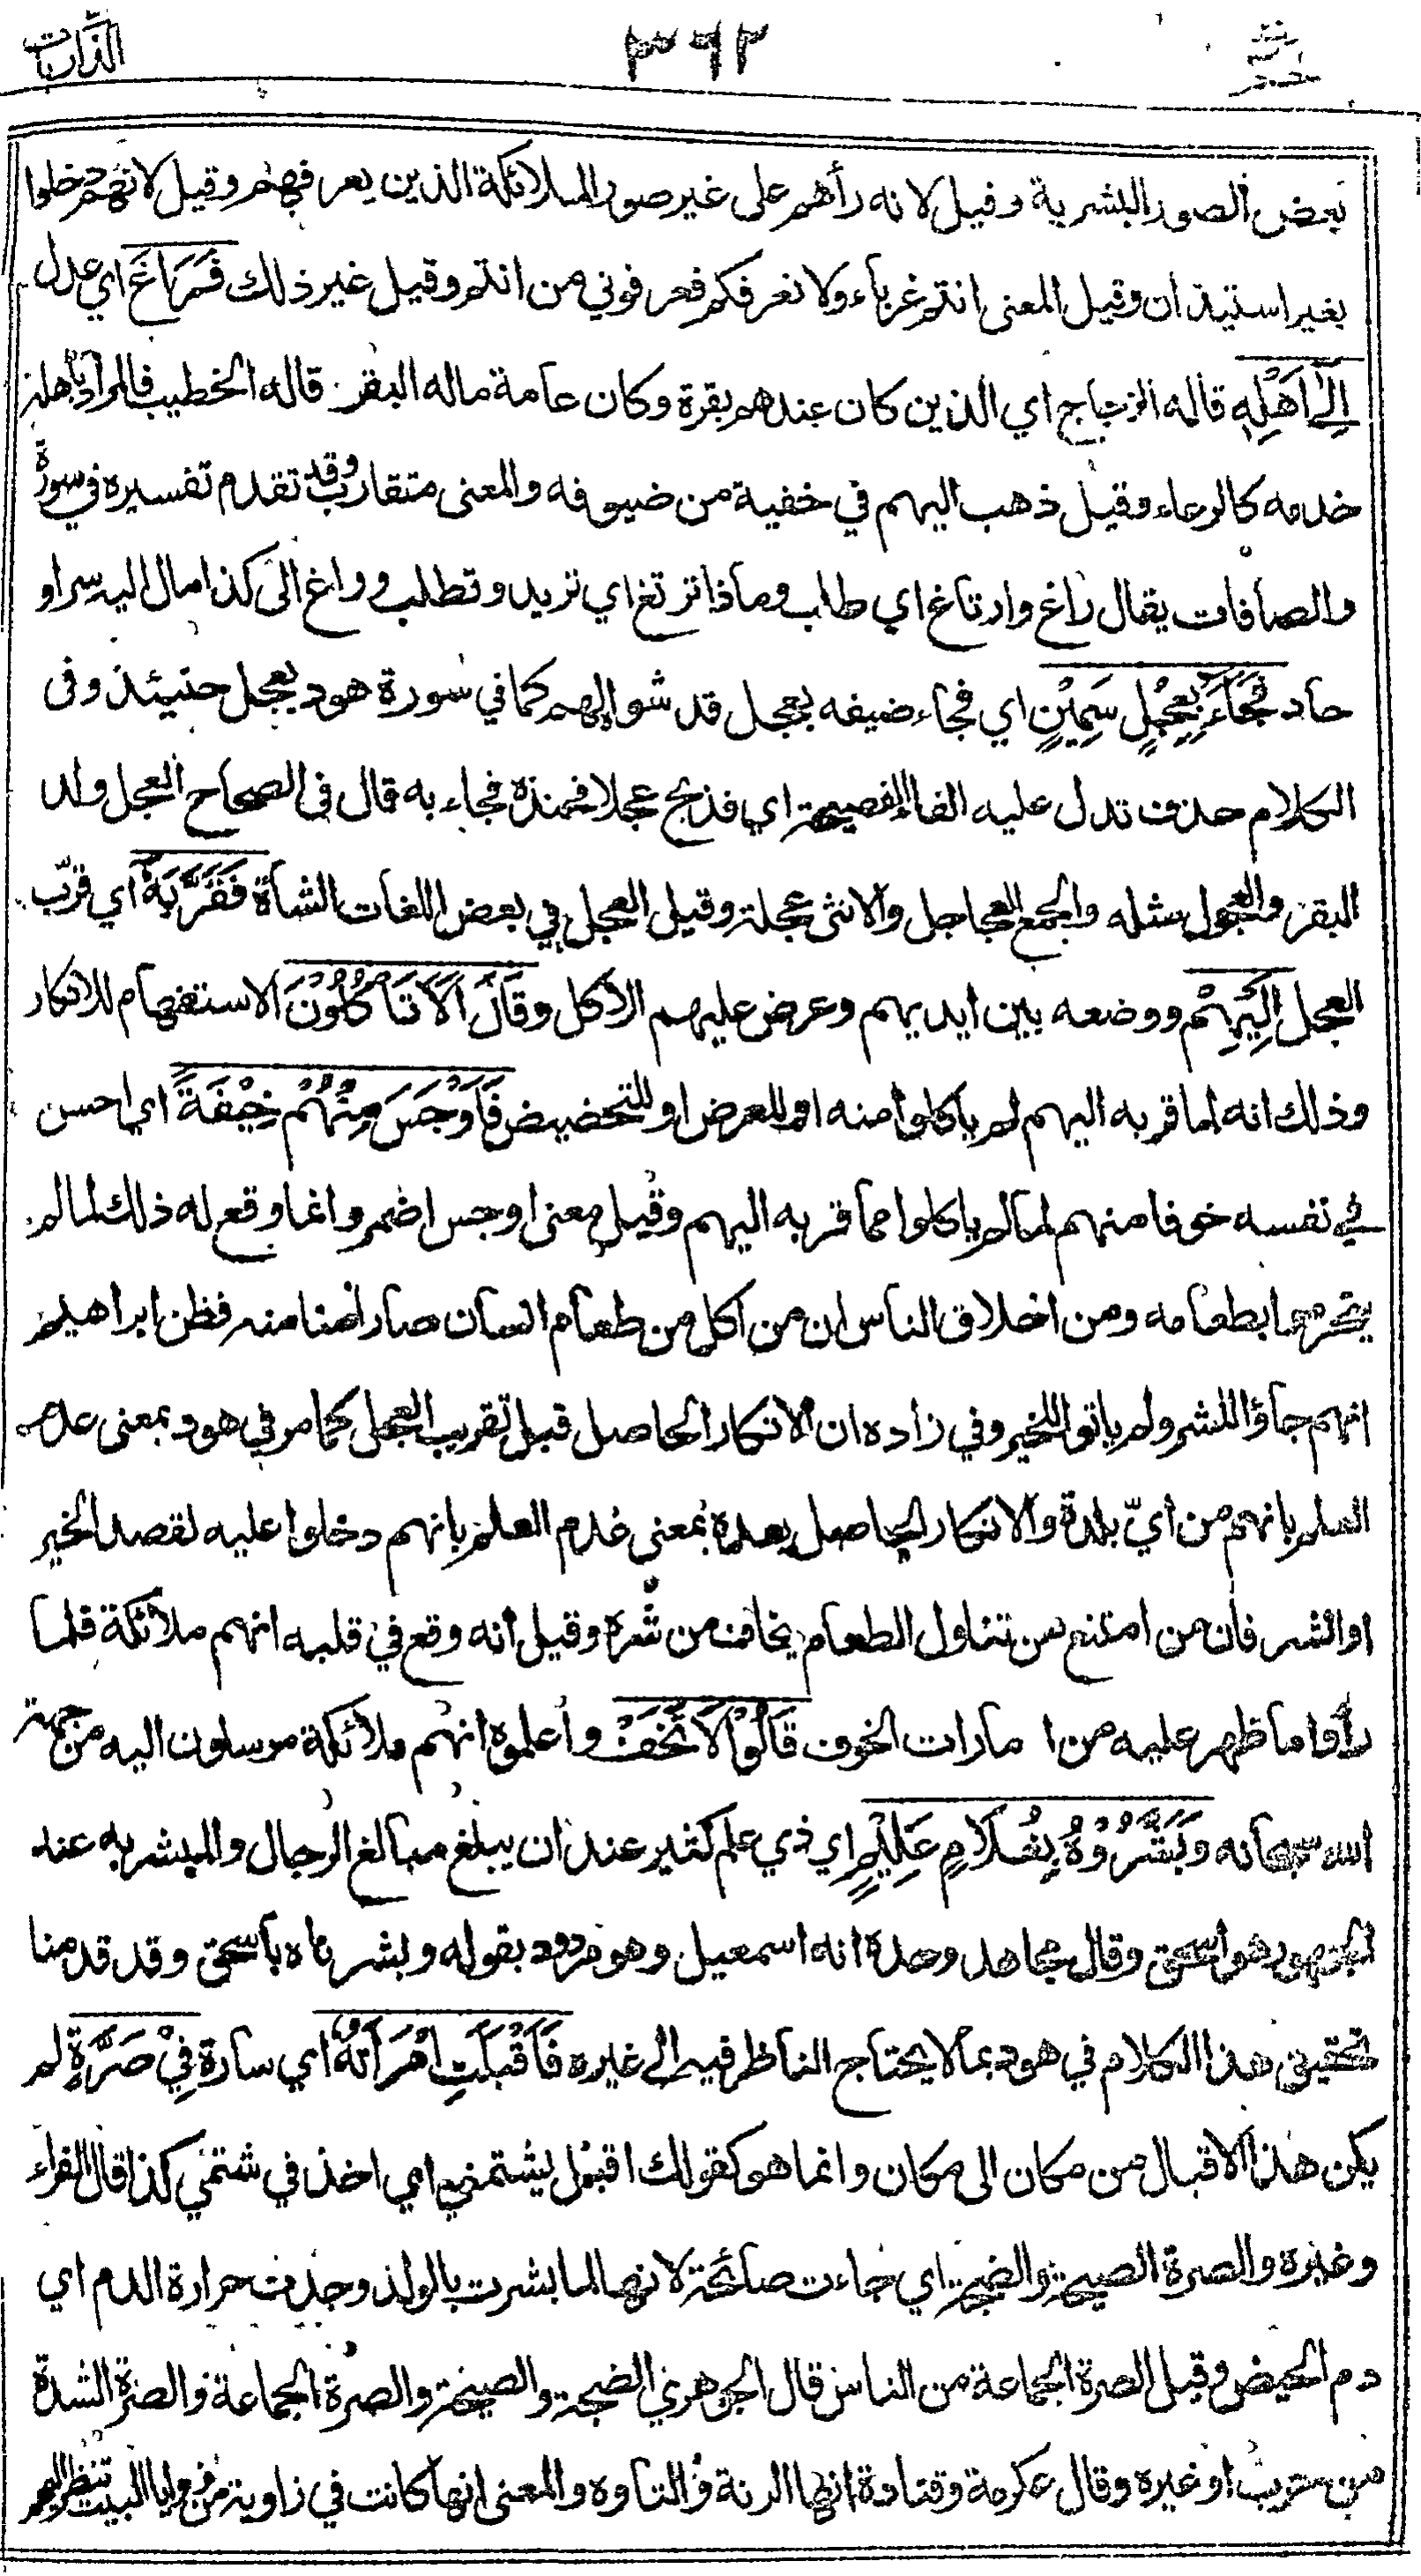 الذاريات
٣٦٢
بعض الصور البشرية وقيل لانه رأهم على غير صور الملائكة الذين يعرفهم وقيل لانهم دخلوا
بغير استيذان وقيل المعنى انتم غرباء ولا نعرفكم فعرفوني من انتم وقيل غير ذلك فَرَاغَ اي عدل
اِلٰٓى اَهْلِهٖ قاله الزجاج اي الذين كان عندهم بقرة وكان عامة ماله البقر قاله الخطيب فالمراد باهله
خدمه كالرعاء وقيل ذهب اليهم في خفية من ضيوفه والمعنى متقارب وقد تقدم تفسيره في سورة
والصافات يقال راغ وارتاغ اي طلب وماذا ترتغ اي تريد وتطلب وراغ الى كذا مال اليه سرا و
حاد فَجَآءَ بِعِجْلٍ سَمِيْنٍ اي فجاء ضيفه بعجل قد شواه لهم كما في سورة هود بعجل حنيئذ وفى
الكلام حذف تدل عليه الفاء الفصيحة اي فذبح عجلا فحنذه فجاء به قال فى الصحاح العجل ولد
البقر والعجول مثله والجمع العجاجل والانثى عجلة وقيل العجل في بعض اللغات الشاة فَقَرَّبَهٗٓ اي قرّب
العجل اِلَيْهِمْ ووضعه بين ايديهم وعرض عليهم الاكل وقَالَ اَلَا تَاْكُلُوْنَ الاستفهام للانكار
وذلك انه لما قربه اليهم لم ياكلوا منه او للعرض او للتحضيض فَاَوْجَسَ مِنْهُمْ خِيْفَةً اي احسن
في نفسه خوفا منهم لما لم ياكلوا مما قربه اليهم وقيل معنى اوجس اضمر وانما وقع له ذلك لما لم
يتحرموا بطعامه ومن اخلاق الناس ان من اكل من طعام انسان صار أمنا منه فظن ابراهيم
انهم جاؤا للشر ولم ياتوا للخير وفي زاده ان الانكار الحاصل قبل تقريب العجل كما مر في هود بمعنى عدم
العلم بانهم من ايّ بلدة والانكار الحاصل بعده بمعنى عدم العلم بانهم دخلوا عليه لقصد الخير
او الشر فان من امتنع من تناول الطعام يخاف من شره وقيل انه وقع في قلبه انهم ملائكة فلما
رأوا ما ظهر عليه من امارات الخوف قَالُوْا لَا تَخَفْ واعلموه انهم ملائكة مرسلون اليه من جهة
الله سبحانه وَبَشَّرُوْهُ بِغُلَامٍ عَلِيْمٍ اي ذي علم كثير عند ان يبلغ مبالغ الرجال والمبشر به عند
الجمهور هو اسحق وقال مجاهد وحده انه اسمعيل وهو مردود بقوله وبشرناه باسحق وقد قدمنا
تحقيق هذا الكلام في هود بما لا يحتاج الناظر فيه الى غيره فَاَقْبَلَتِ امْرَاَتُهٗ اي سارة فِيْ صَرَّةٍ لم
يكن هذا الاقبال من مكان الى مكان وانما هو كقولك اقبل يشتمني اي اخذ في شتمي كذا قال الفراء
وغيره والصرة الصيحة والضجة اي جاءت صائحة لانها لما بشرت بالولد وجدت حرارة الدم اي
دم الحيض وقيل الصرة الجماعة من الناس قال الجوهري الضجة والصيحة والصرة الجماعة والصرة الشدة
من كرب او غيره وقال عكرمة وقتادة انها الرنة والتاوه والمعنى انها كانت في زاوية من زوايا البيت تنظر اليهم